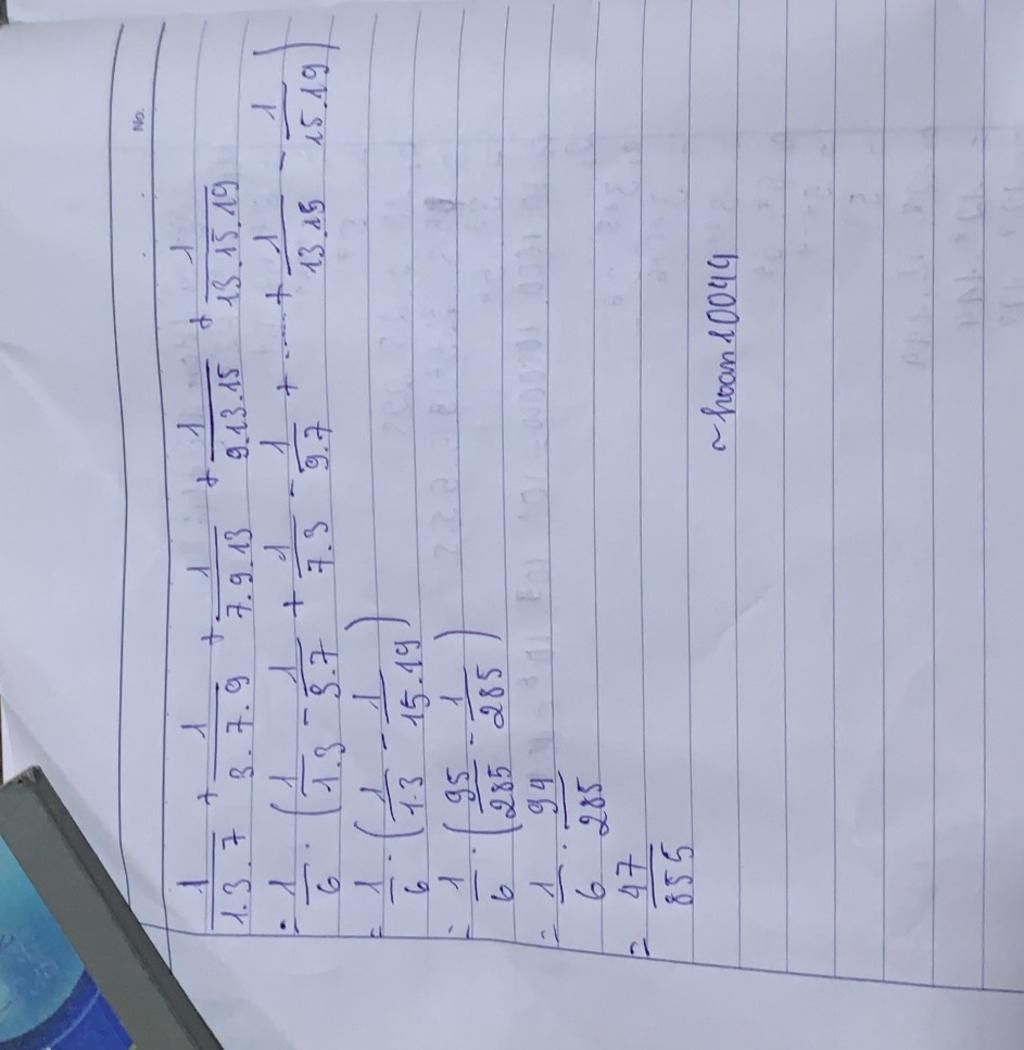 No.
1/1.3.7 + 1/3.7.9 + 1/7.9.13 + 1/9.13.15 + 1/13.15.19
= 1/6 . (1/1.3 - 1/3.7 + 1/7.3 - 1/9.7 + ..... + 1/13.15 - 1/15.19)
= 1/6 . (1/1.3 - 1/15.19)
= 1/6 . (95/285 - 1/285)
= 1/6 . 94/285
= 47/855
~hoan10044